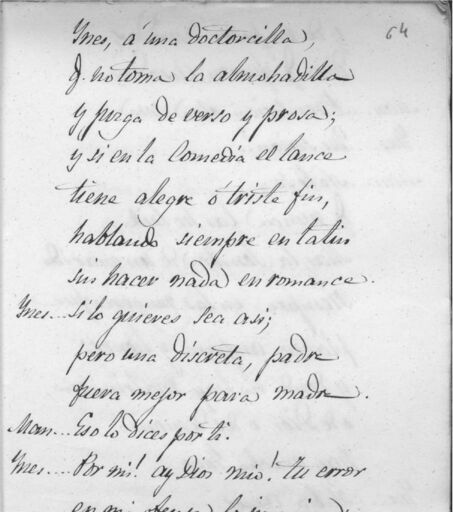 64
Ynes, á una doctorcilla,
q. no toma la almohadilla
y juzga de verso y prosa;
y si en la Comedia el lance
tiene alegre ó triste fin,
hablando siempre en latin
sin hacer nada en romance.
Ynes... si lo quieres sea asi;
pero una discreta, padre
fuera mejor para madre.
Man... Eso lo dices por ti.
Ynes... Por mi! ay Dios mio! tu error
en mi ofensa